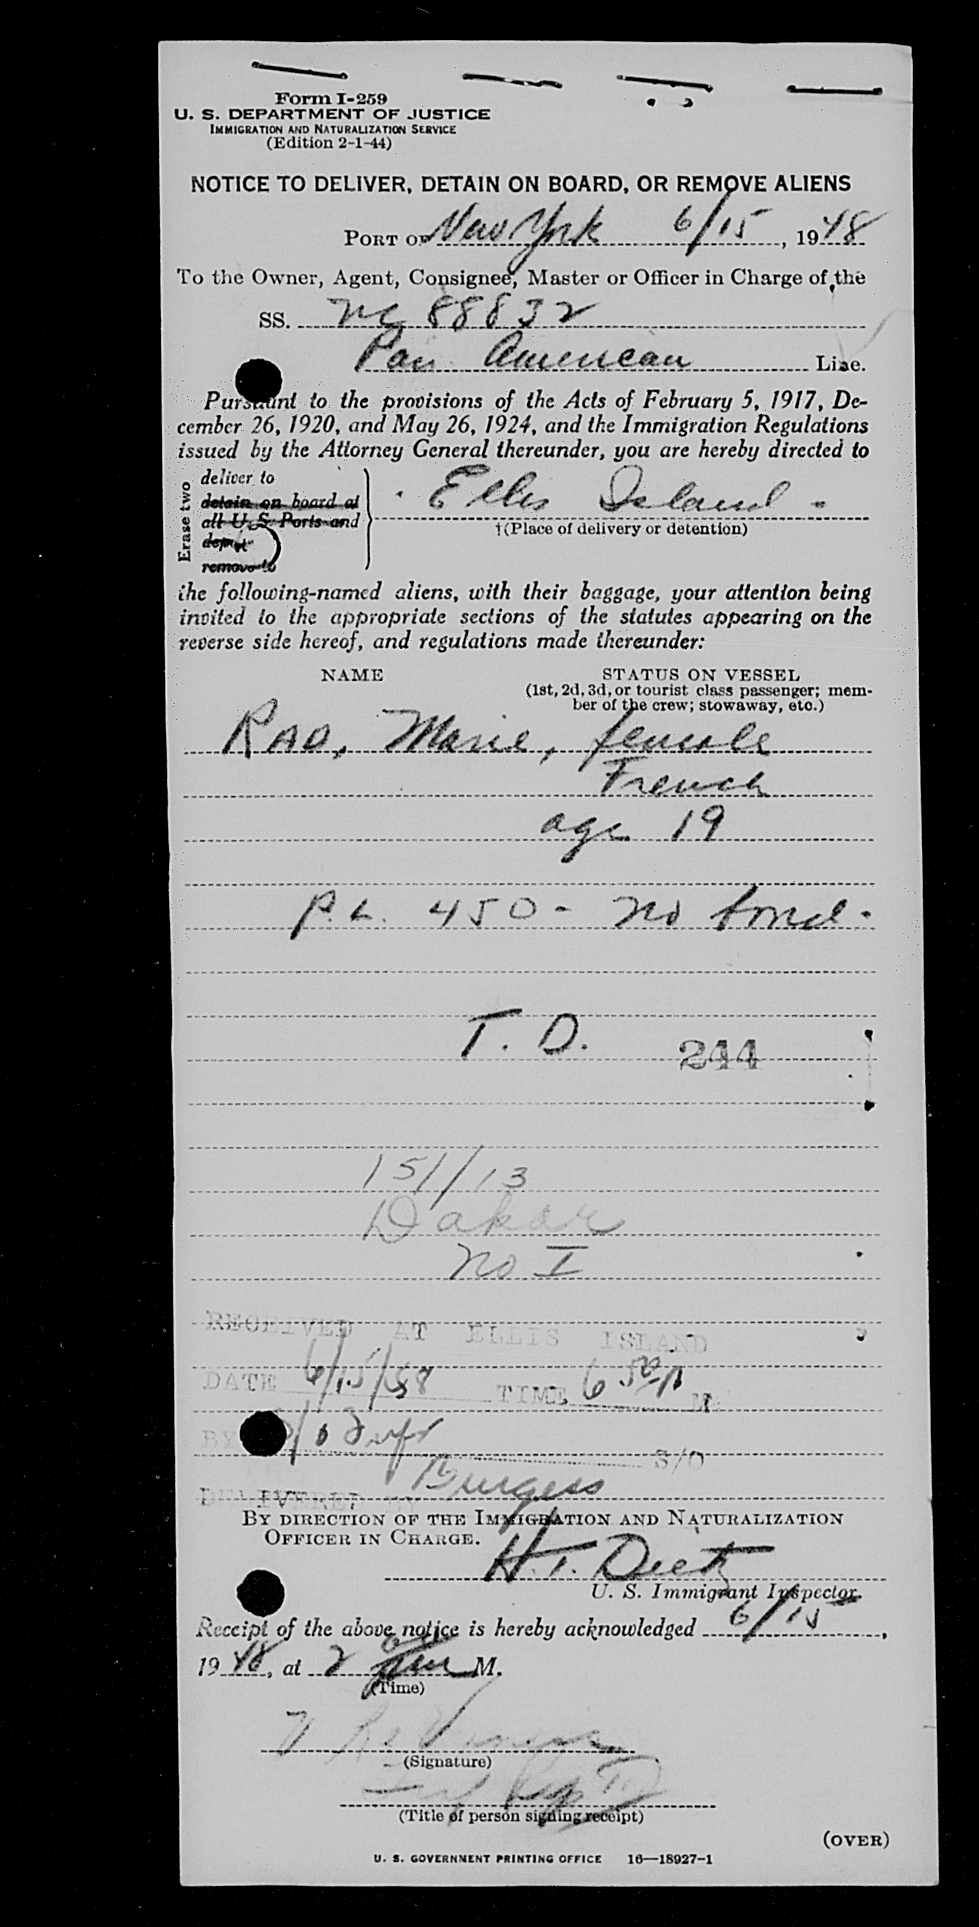 Form I-259
U. S. DEPARTMENT OF JUSTICE
IMMIGRATION AND NATURALIZATION SERVICE
(Edition 2-1-44)
NOTICE TO DELIVER, DETAIN ON BOARD, OR REMOVE ALIENS
PORT OF New York 6/15, 1948
To the Owner, Agent, Consignee, Master or Officer in Charge of the
SS. NC 88832
Pan American Line.
Pursuant to the provisions of the Acts of February 5, 1917, De-
cember 26, 1920, and May 26, 1924, and the Immigration Regulations
issued by the Attorney General thereunder, you are hereby directed to
Erase two
deliver to
detain on board at
all U.S. Ports and
depot
remove to
Ellis Island -
†(Place of delivery or detention)
the following-named aliens, with their baggage, your attention being
invited to the appropriate sections of the statutes appearing on the
reverse side hereof, and regulations made thereunder:
NAME STATUS ON VESSEL
(1st, 2d, 3d, or tourist class passenger; mem-
ber of the crew; stowaway, etc.)
RAD, Marie, female
French
age 19
P.L. 450 - no bond.
T. D. 244
151/13
Dakar
No I
RECEIVED AT ELLIS ISLAND
DATE 6/15/48 TIME 6 50 P M.
BY
S/O
Burgess
DELIVERED BY
BY DIRECTION OF THE IMMIGRATION AND NATURALIZATION
OFFICER IN CHARGE.
H. T. Deetz
U. S. Immigrant Inspector.
Receipt of the above notice is hereby acknowledged 6/15,
1948, at 2 M.
(Time)
(Signature)
(Title of person signing receipt)
(OVER)
U. S. GOVERNMENT PRINTING OFFICE 16—18927-1